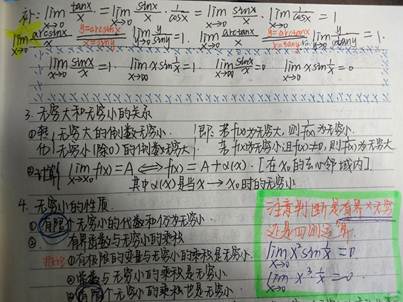 补: lim x→0 tanx/x = lim x→0 sinx/x · 1/cosx = lim x→0 sinx/x · lim x→0 1/cosx = 1
lim x→0 arcsinx/x y=arcsinx x=siny lim y→0 y/siny = 1. lim x→0 arctanx/x y=arctanx x=tany lim y→0 y/tany = 1.
lim x→0 sinx/x = 1 lim x→∞ xsin1/x = 1 lim x→∞ sinx/x = 0 lim x→0 xsin1/x = 0
3. 无穷大和无穷小的关系
无穷大的倒数无穷小. 即: 若f(x)为无穷大, 则1/f(x)为无穷小
无穷小(除0)的倒数无穷大 若f(x)为无穷小且f(x)≠0, 则1/f(x)为无穷大
② lim x→x₀ f(x) = A ⟺ f(x) = A + α(x). [在x₀的去心邻域内]
其中α(x)是当x→x₀时的无穷小
4. 无穷小的性质
① 有限个无穷小的代数和仍为无穷小.
② 有界函数与无穷小的乘积
推论 ①有极限的变量与无穷小的乘积是无穷小
②常数与无穷小的乘积是无穷小
③有限个无穷小的乘积也是无穷小
注意判断是有界×无穷
还是四则运算.
lim x→0 x²sin1/x = 0
lim x→0 x³·1/x = 0